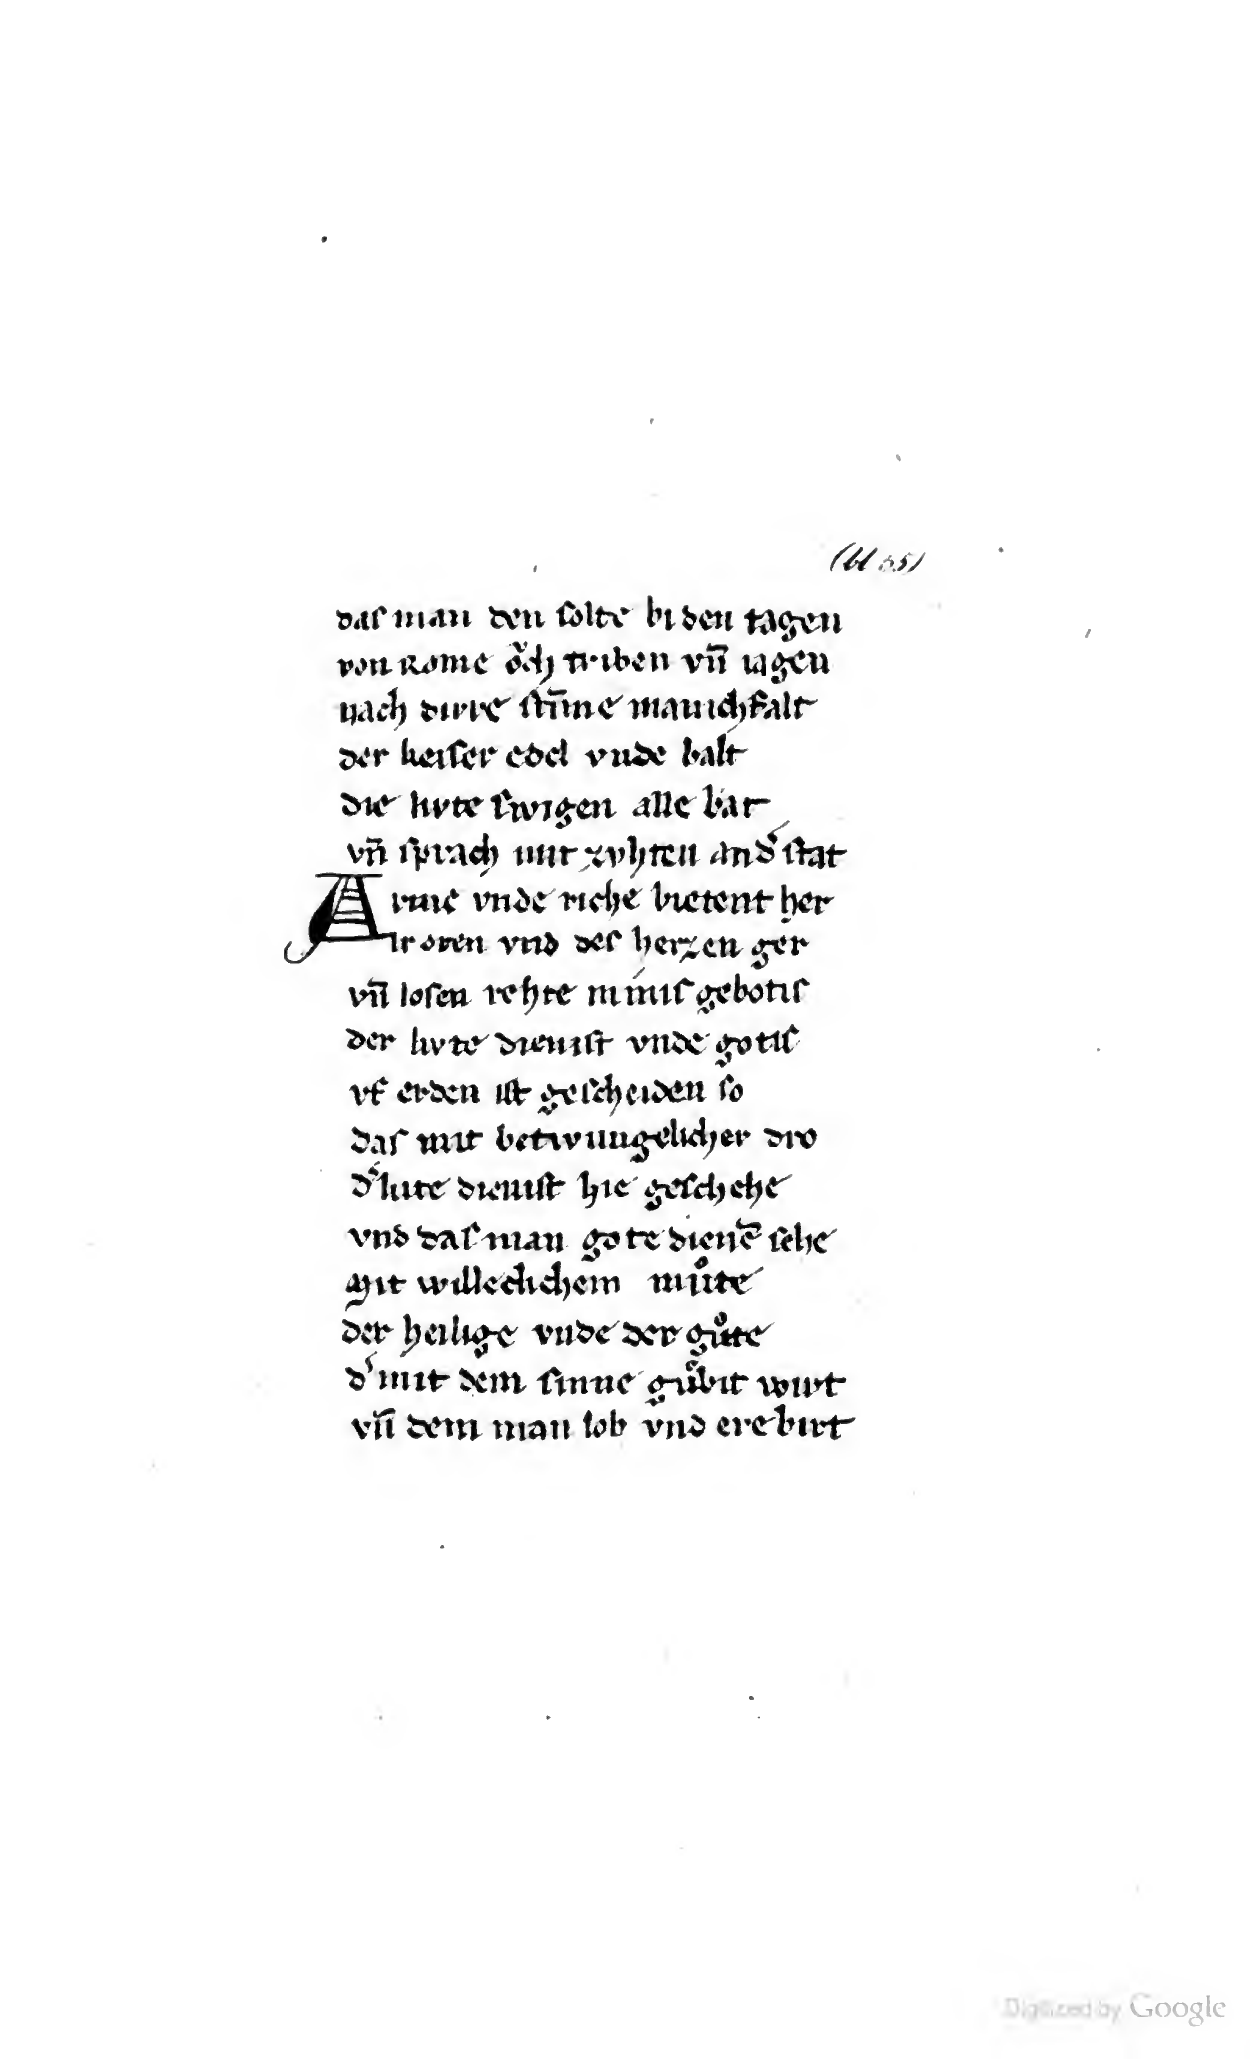 (bl 35)
daſ man den ſolte bi den tagen
von Rome oͮch triben vn̄ iagen
nach dirre ſtim̄e manichfalt
der keiſer edel vnde balt
die livte ſwigen alle bat
vn̄ ſprach mit zvhten an d͛ ſtat
Arme vnde riche bietent her
ir oren vnd des herzen ger
vn̄ loſen rehte miniſ gebotiſ
der livte dieniſt vnde gotiſ
vf erden iſt geſcheiden ſo
daſ mit betwungelicher dro
d͛ lute dieniſt hie geſchehe
vnd daſ man gote dienē ſehe
Mit willeclichem muͦte
der heilige vnde der guͦte
d͛ mit dem ſinne guͤbit wirt
vn̄ dem man lob vnd ere birt
Digitized by Google